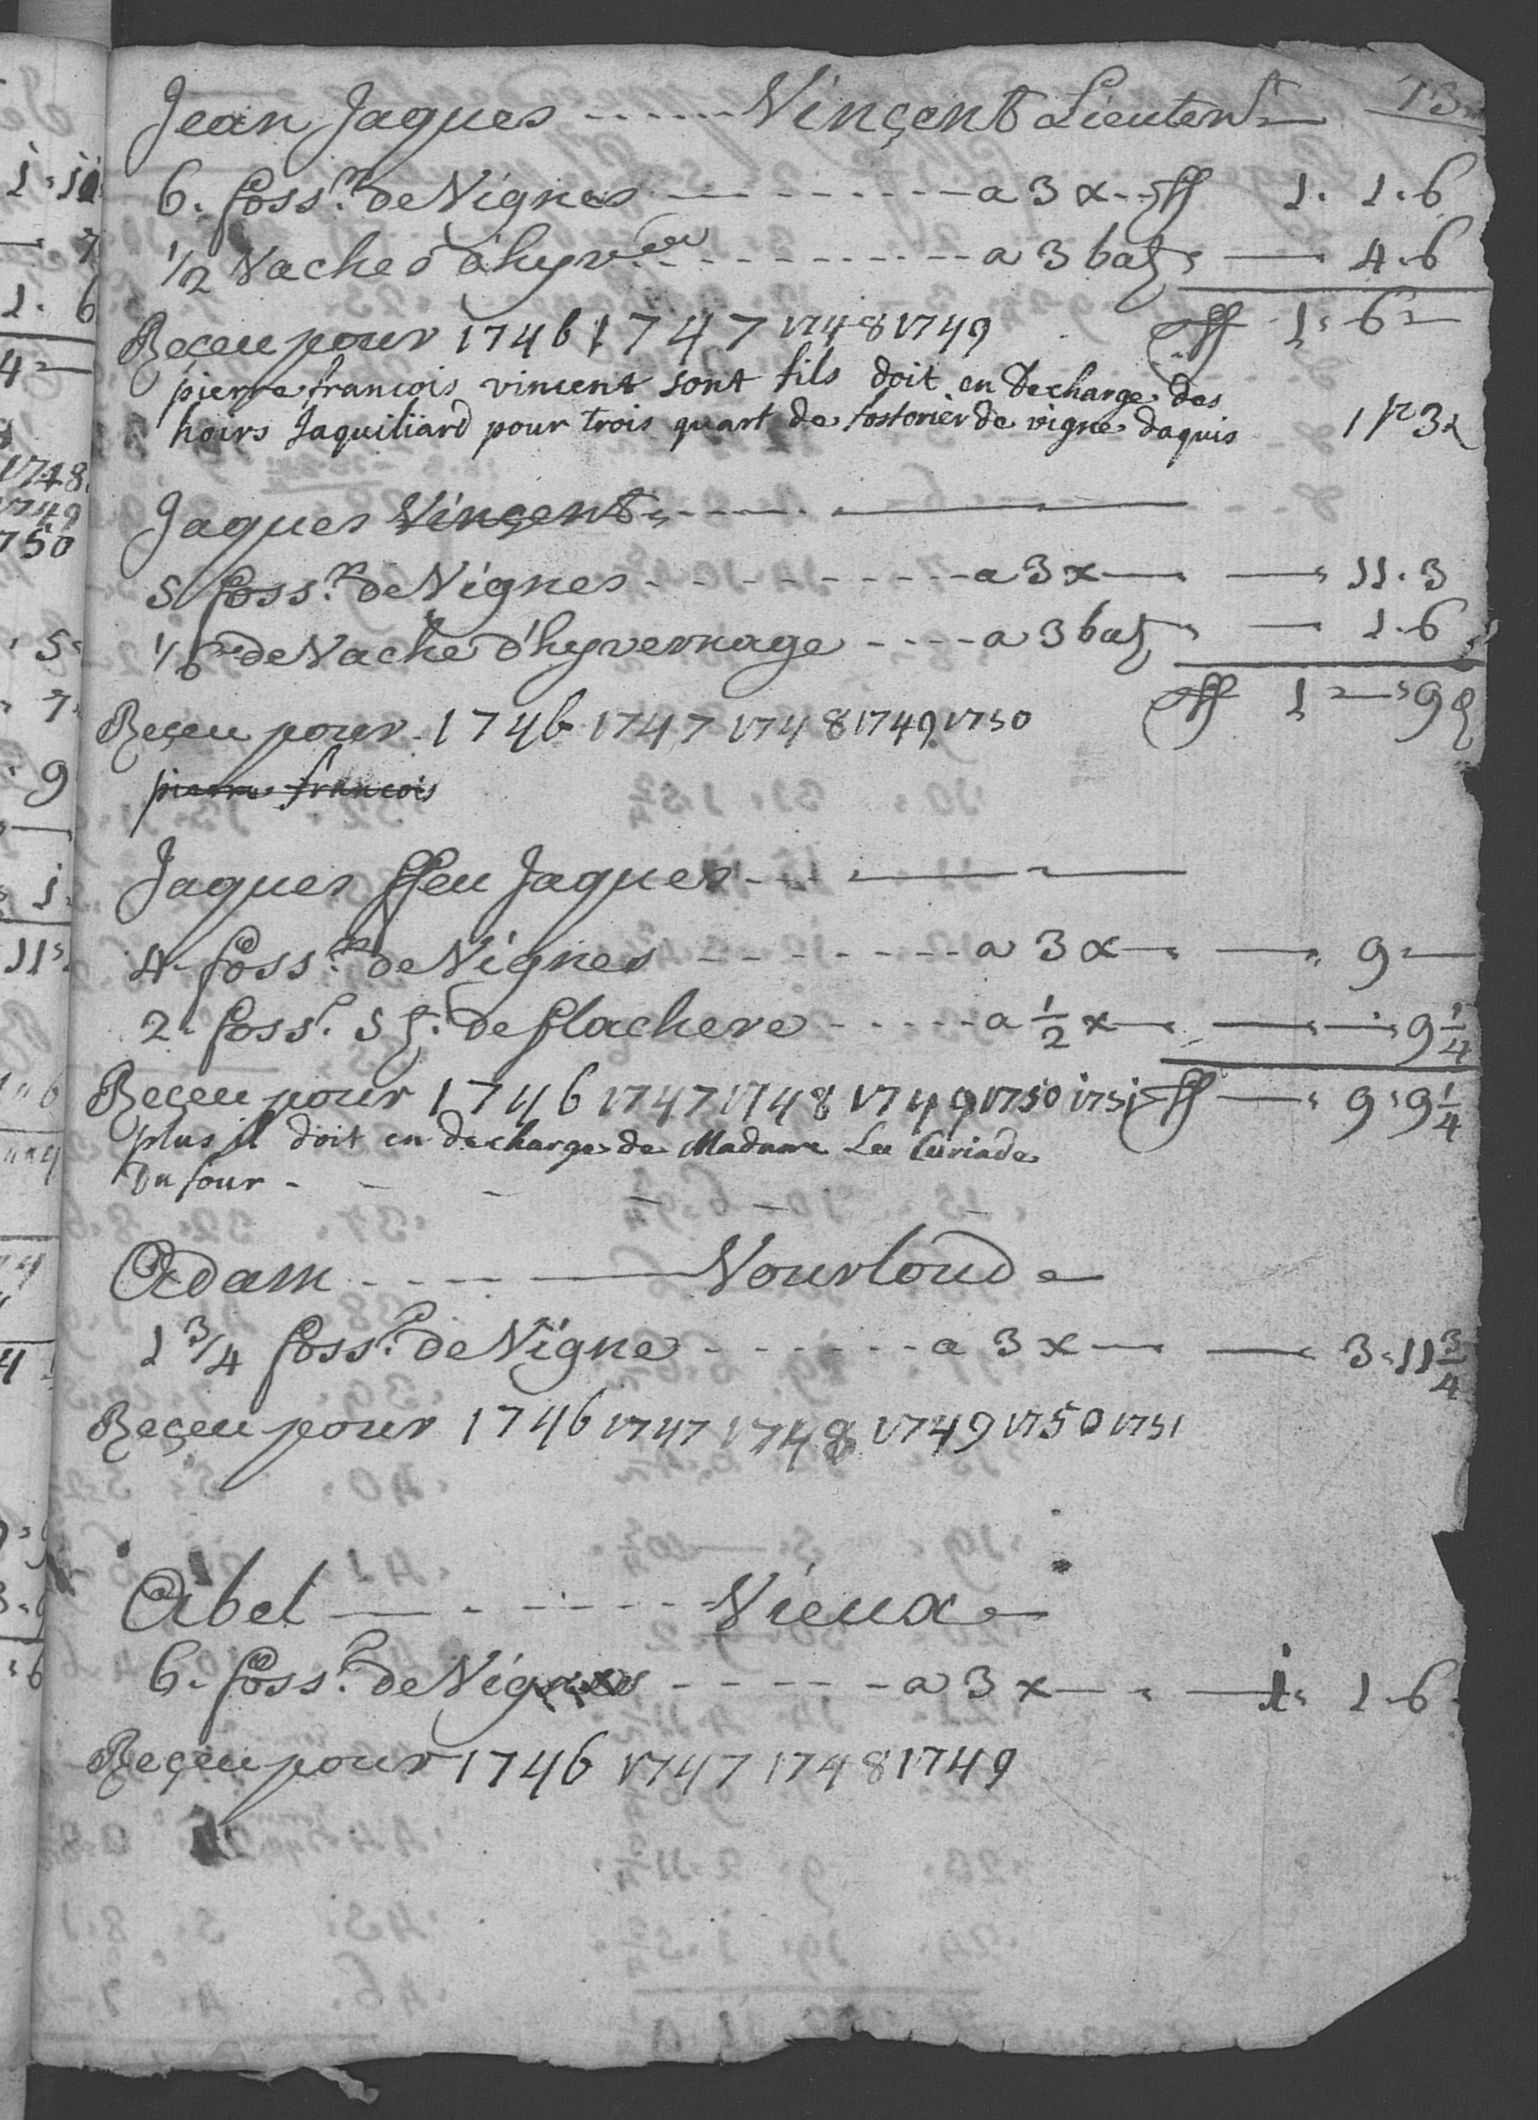 13
Jean Jaques ------ Vinçent Lieuten.t
6. foss.rs de Vignes ---------- a 3 x. ff 1. 1. 6
1/2 Vache d'hyver ---------- a 3 batz — 4. 6
Reçeu pour 1746 1747 1748 1749 ff 1. 6 —
pierre francois vincent sont fils doit en decharge des
hoirs Jaquiliard pour trois quart de fossorier de vigne daquis
Jaques Vinçent
5 foss.rs de Vignes ---------- a 3 x — — 11. 3
1/6 de Vache d'hyvernage ---- a 3 batz — 1. 6
ff 1 — 9
Reçeu pour 1746 1747 1748 1749 1750
pierre francois
Jaques ffeu Jaques
4. foss.rs de Vignes -------- a 3 x — — 9 —
2. foss.r 5 f. de flachere ----- a 1/2 x — — 9 1/4
Reçeu pour 1746 1747 1748 1749 1750 1751 ff — 9. 9 1/4
plus il doit en decharge de Madame La Curiade
Du four - - - - - -
Adam ---- Vourloud
1 3/4 foss.r de Vigne ------- a 3 x — — 3. 11 3/4
Reçeu pour 1746 1747 1748 1749 1750 1751
Abel ------- Vieux
6. foss.r de Vignes ------ a 3 x — 1. 1. 6
Reçeu pour 1746 1747 1748 1749